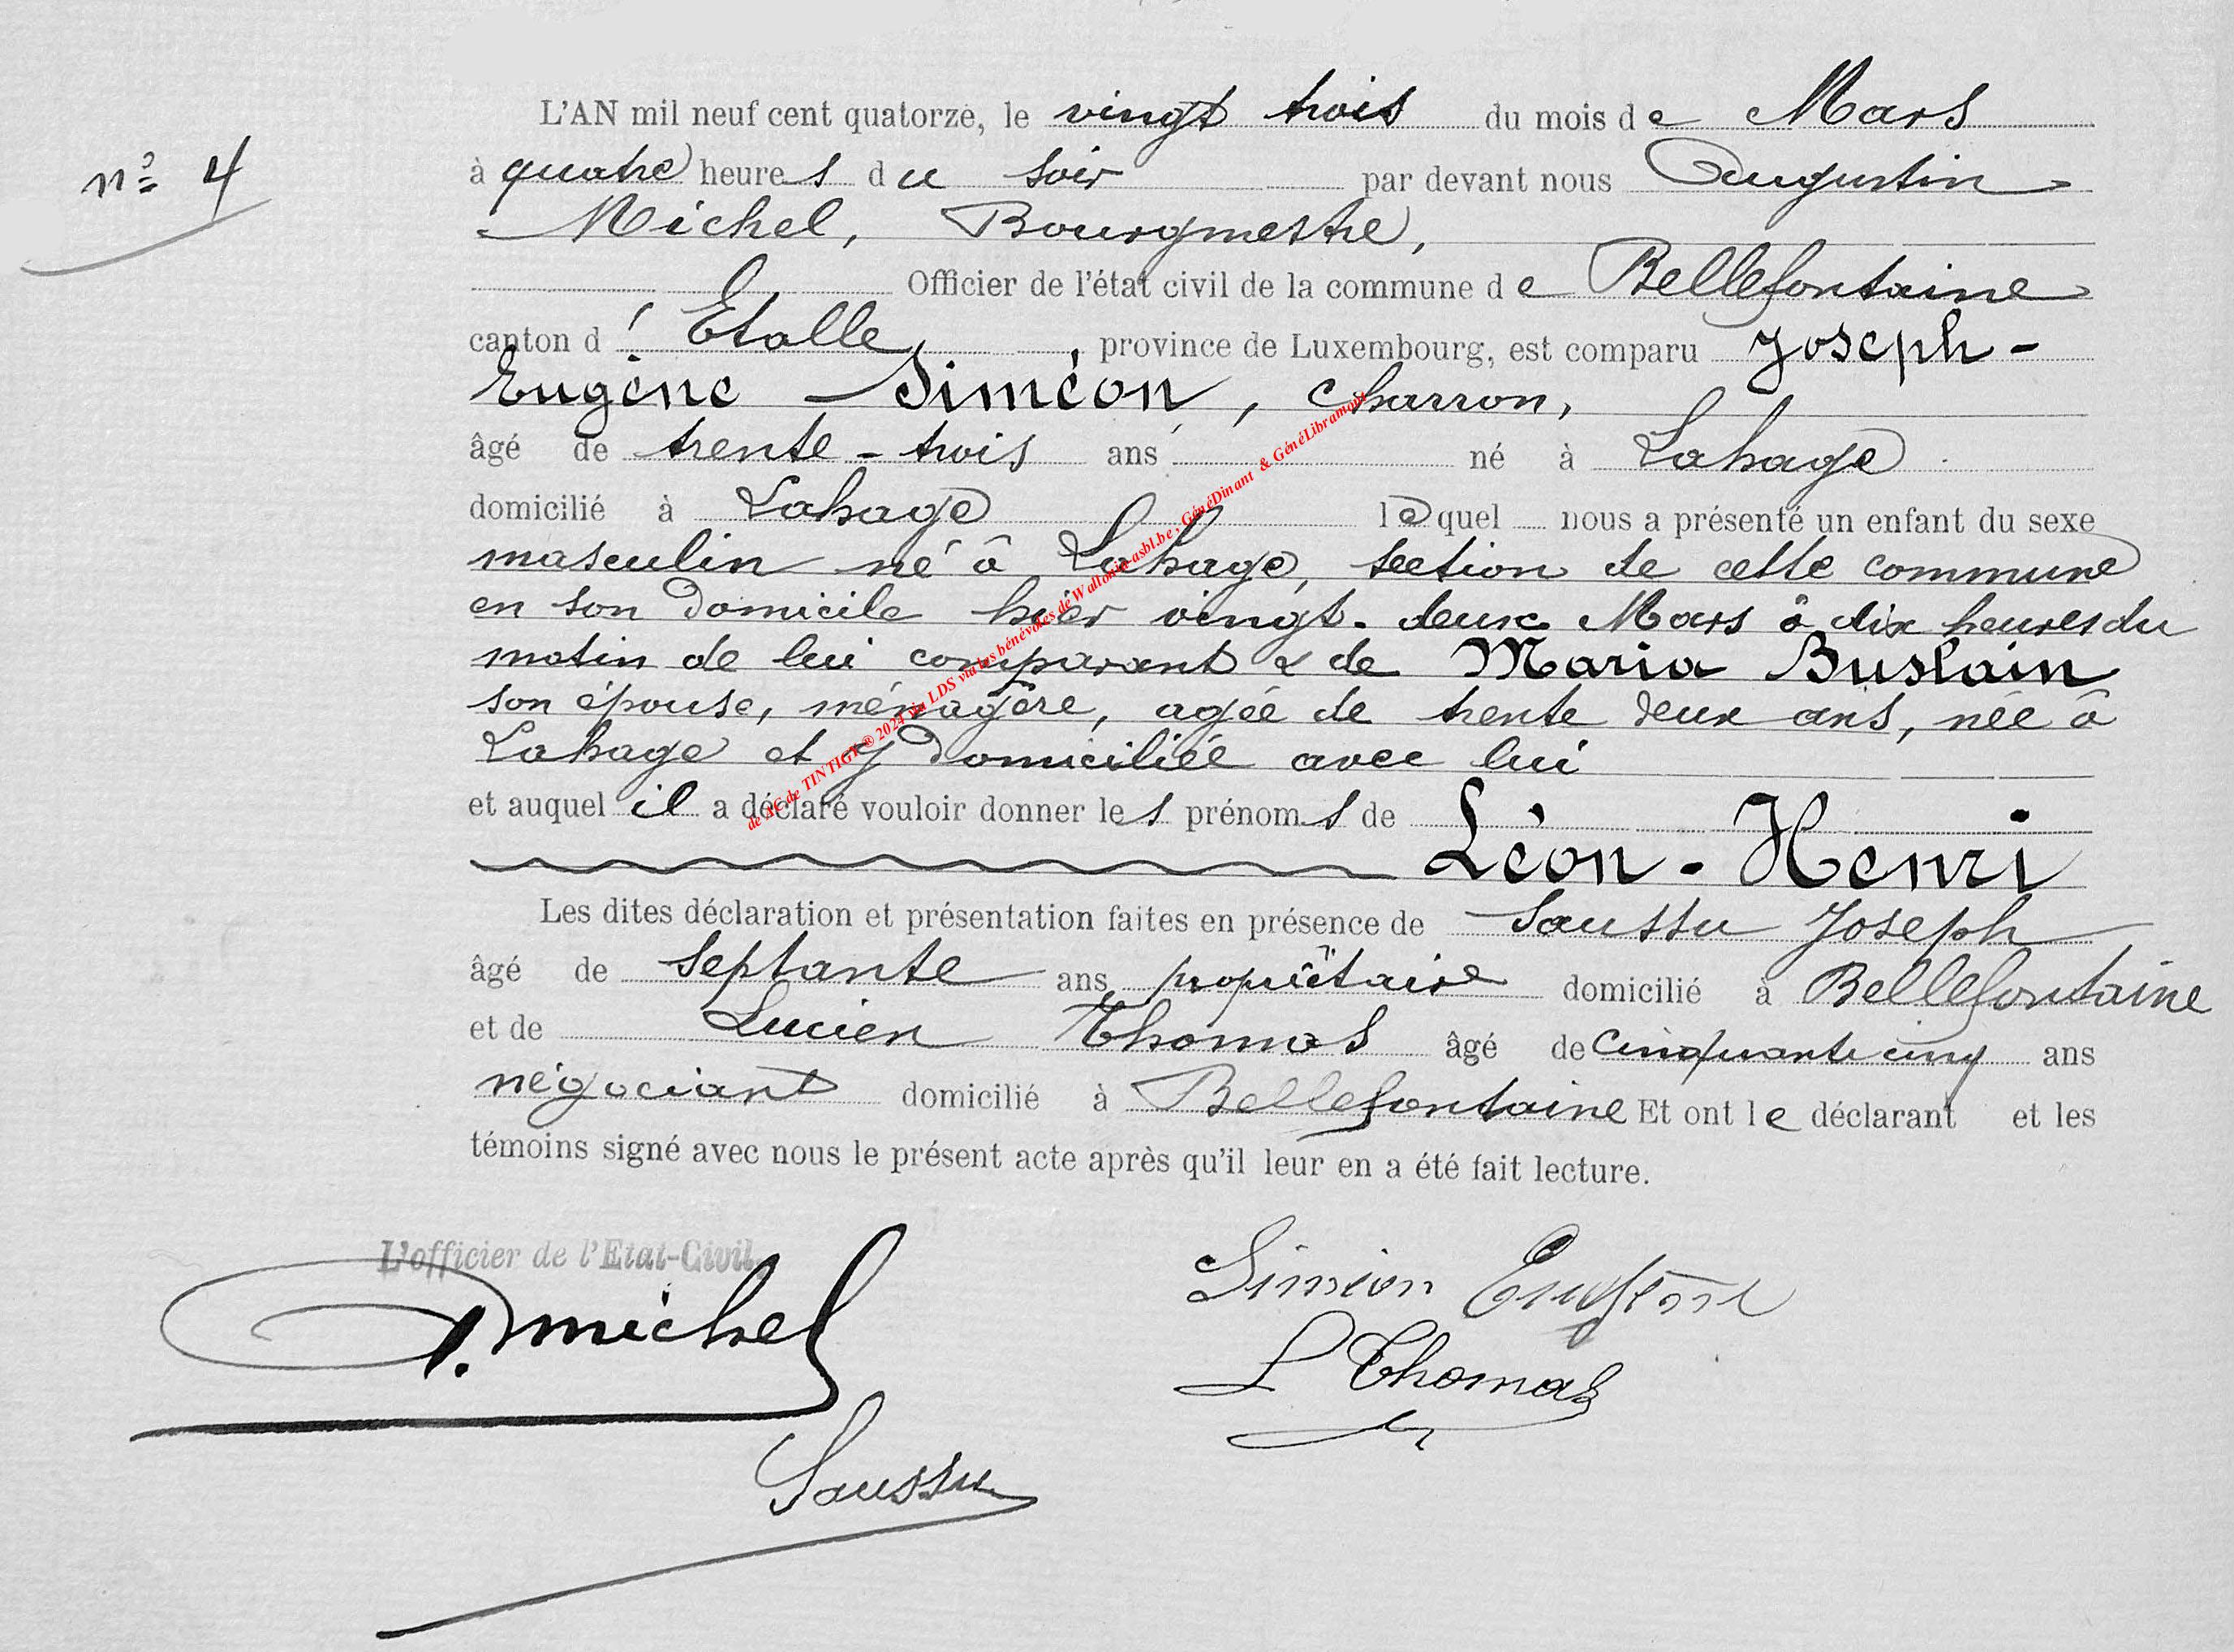 L'AN mil neuf cent quatorze, le vingt trois du mois de Mars
n° 4
à quatre heures du soir par devant nous Augustin
Michel, Bourgmestre,
Officier de l'état civil de la commune de Bellefontaine
canton d'Etalle, province de Luxembourg, est comparu Joseph-
Eugène Siméon, charron,
âgé de trente-trois ans né à Lahage
domicilié à Lahage lequel nous a présenté un enfant du sexe
masculin né à Lahage, section de cette commune
en son domicile hier vingt-deux Mars à dix heures du
matin de lui comparant & de Maria Buslain
son épouse, ménagère, agée de trente deux ans, née à
Lahage et y domiciliée avec lui
et auquel il a déclaré vouloir donner les prénoms de
Léon-Henri
Les dites déclaration et présentation faites en présence de Saussu Joseph
âgé de septante ans propriétaire domicilié à Bellefontaine
et de Lucien Thomas âgé de cinquante cinq ans
négociant domicilié à Bellefontaine Et ont le déclarant et les
témoins signé avec nous le présent acte après qu'il leur en a été fait lecture.
L'officier de l'Etat-Civil,
A. Michel
Siméon Eugène
L Thomas
Saussu
de AC de TINTIGY ® 2024 via LDS via les bénévoles de Wallonia-asbl.be - GénéDinant & GénéLibramont